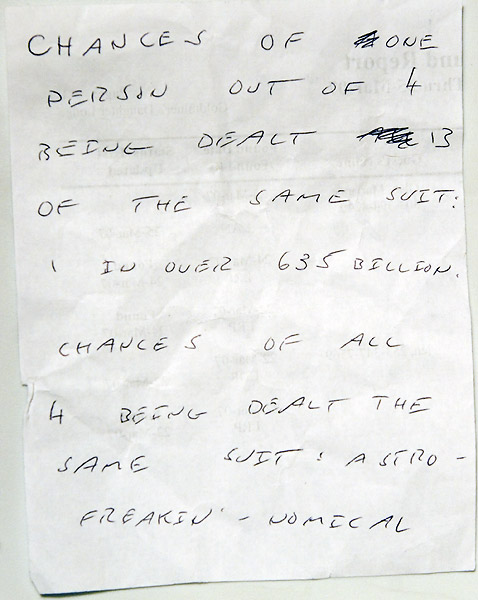 CHANCES OF ONE
PERSON OUT OF 4
BEING DEALT 13
OF THE SAME SUIT:
1 IN OVER 635 BILLION.
CHANCES OF ALL
4 BEING DEALT THE
SAME SUIT: ASTRO-
FREAKIN'-NOMICAL